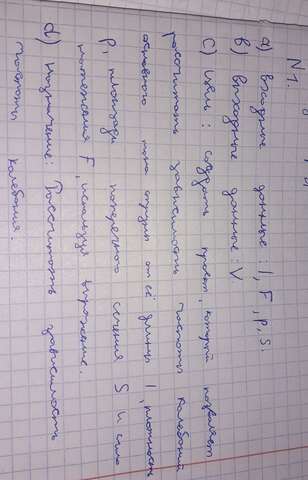 N1.
a) входные данные: l, F, p, S.
b) выходные данные: V
c) Цель: создать проект, который позволяет
рассчитать зависимость частоты колебаний
основного тона струны от её длины l, плотность
p, площади поперечного сечения S и силы
натяжения F, используя выражение.
d) Назначение: Рассчитать зависимость
частоты колебания.